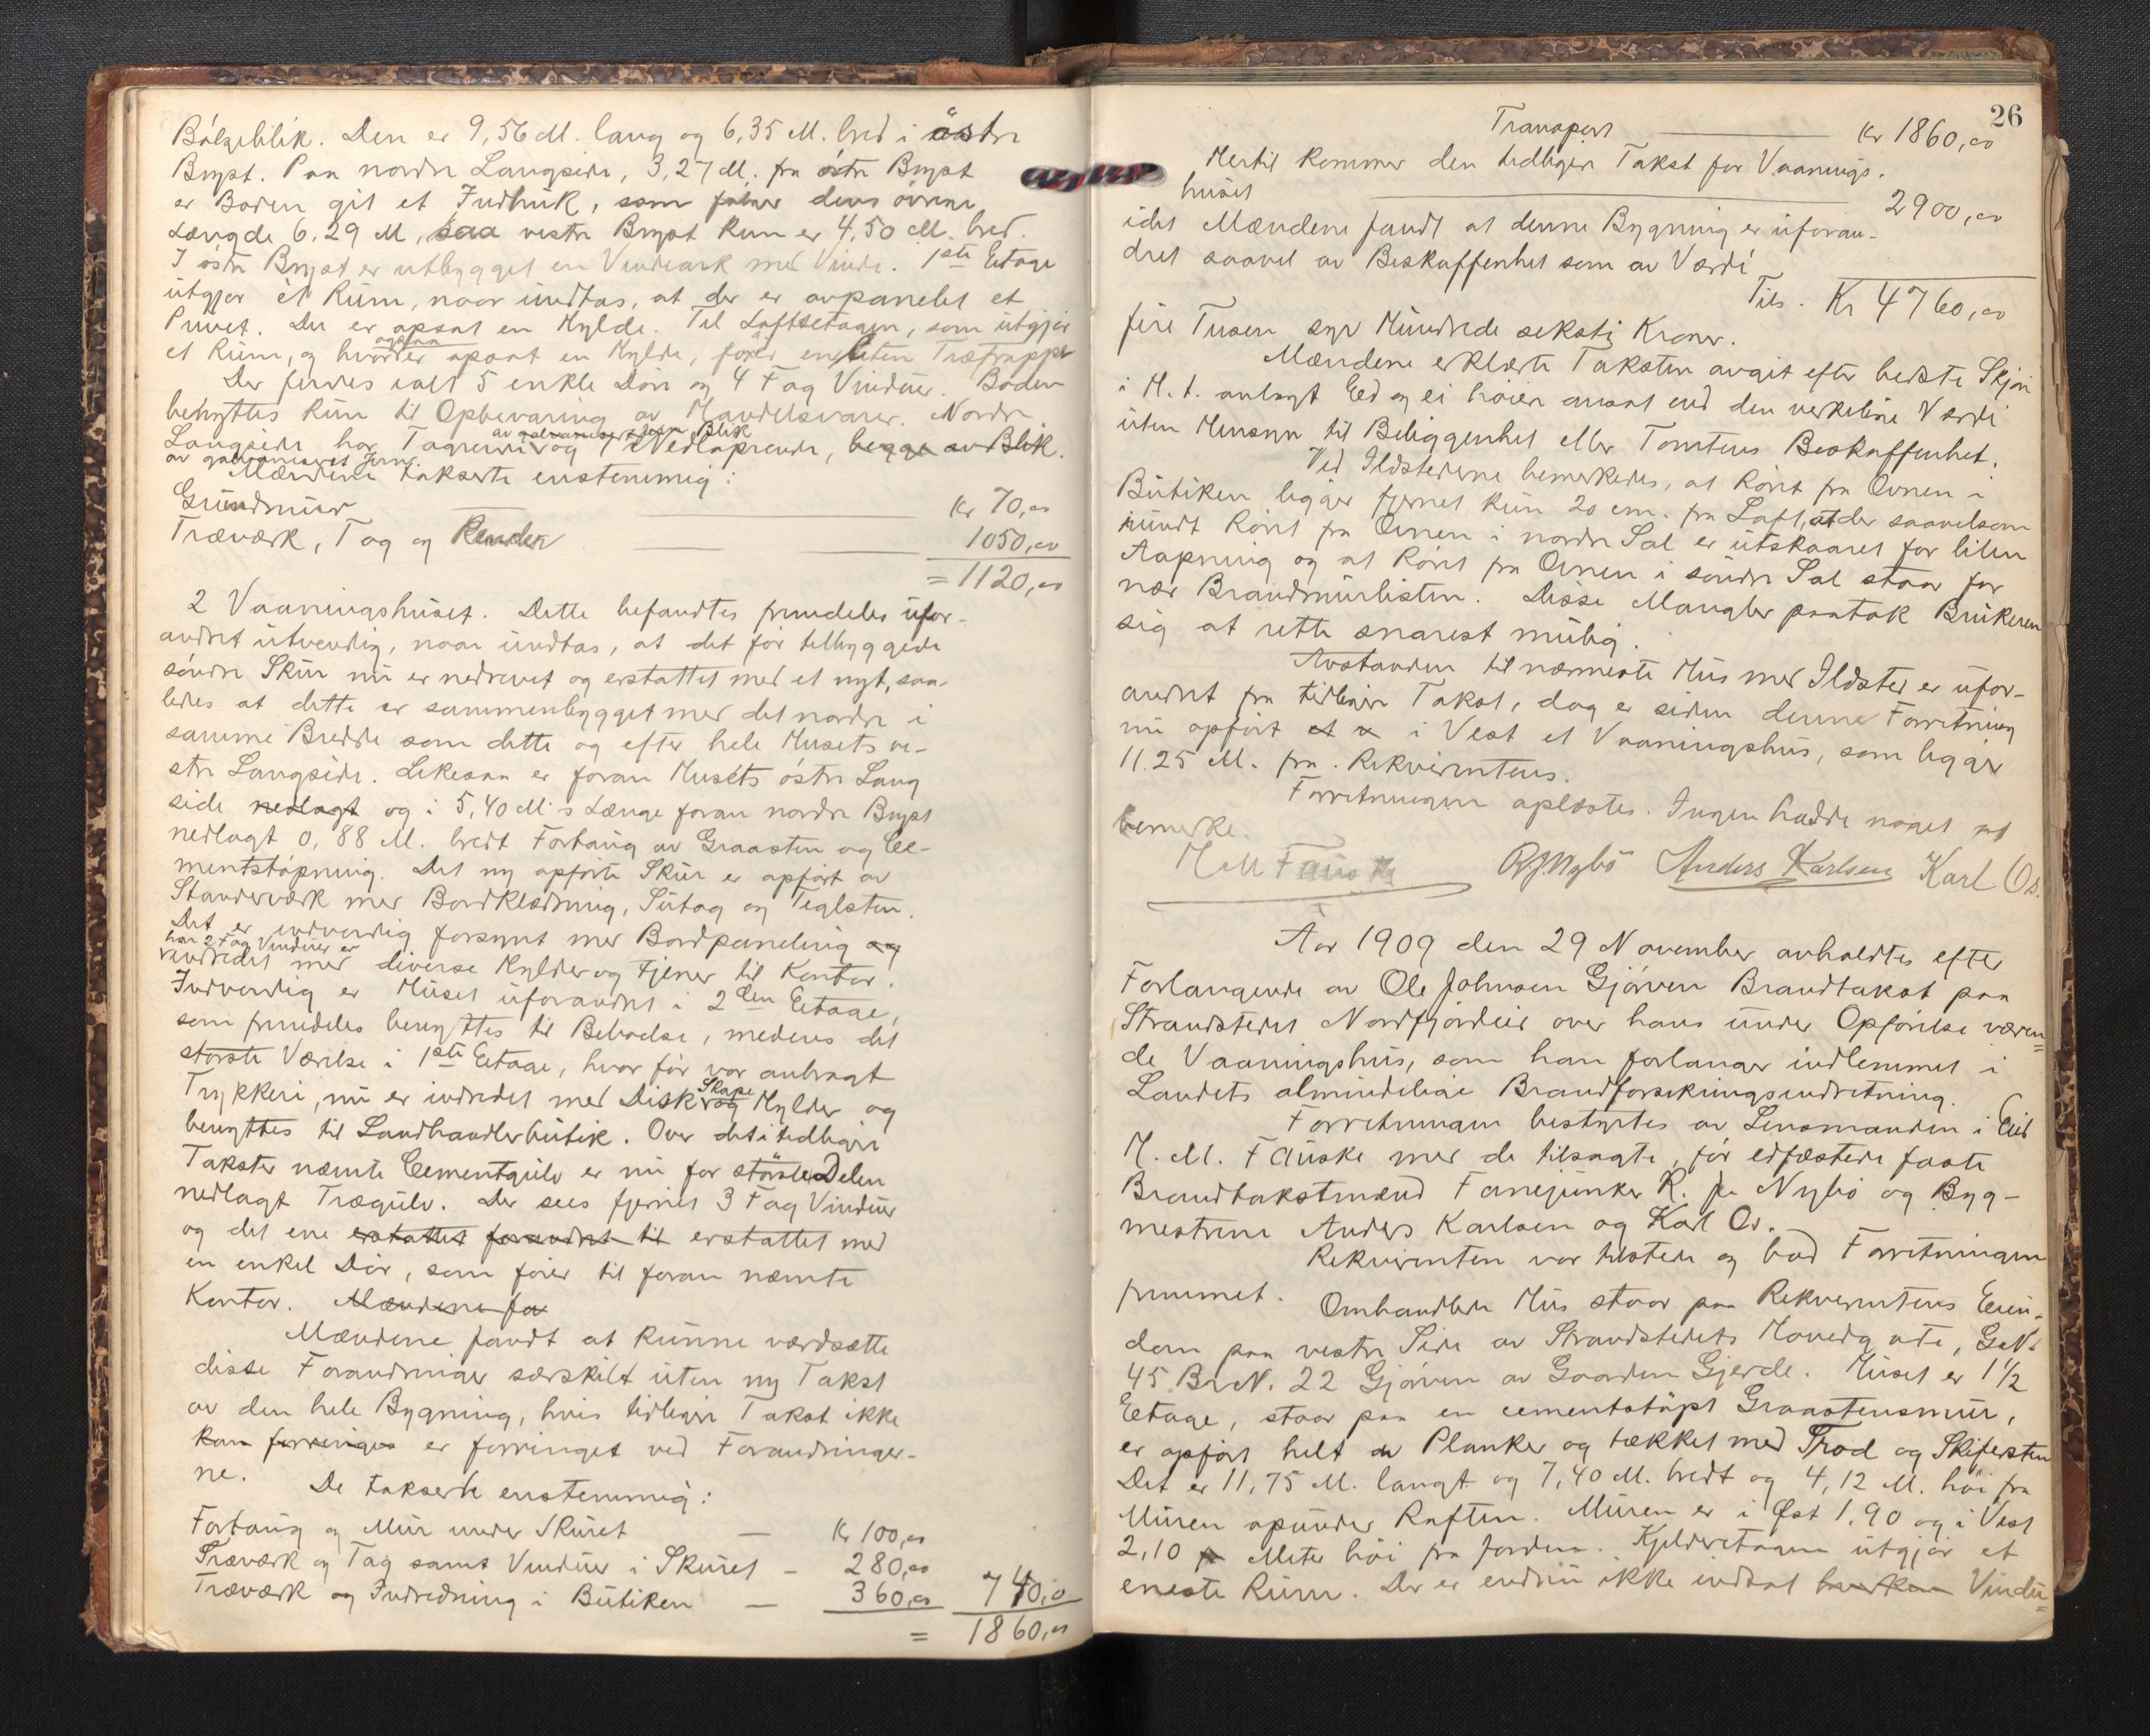 Bölgeblik. Den er 9,56 M. lang og 6,35 M. bred i östre
Bryst. Paa nordre Langside, 3,27 M. fra östre Bryst
er Boden git et Indhuk, som følner dens övrige
Længde 6,29 M, saa vestre Bryst kun er 4,50 M. bred.
I östre Bryst er utbygget en Vindeark med Vinde. 1ste Etage
utgjør ét Rum, naar undtas, at der er avpanelet et
Privet. Der er opsat en Hylde. Til Loftsetagen, som utgjør
et Rum, og hvor ogsaa er opsat en Hylde, fører en liten Trætrappe
Der findes ialt 5 enkle Döre og 4 Fag Vinduer. Boden
benyttes kun til Opbevaring av Handelsvarer. Nordre
Langside har Tagrende av galvanisert Jern Blik og 1 Nedløprende, begge av Blik.
av galvaniseret Jern.
Mændene takserte enstemmig:
Grundmur Kr 70,00
Træværk, Tag og Render 1050,00
= 1120,00
2 Vaaningshuset. Dette befandtes fremdeles ufor-
andret utvendig, naar undtas, at det før tilbyggede
söndre Skur nu er nedrevet og erstattet med et nyt, saa-
ledes at dette er sammenbygget med det nordre i
samme Bredde som dette og efter hele Husets ve-
stre Langside. Likesaa er foran Husets östre Lang
side nedlagt og i 5,40 M's Længe foran nordre Bryst
nedlagt 0,88 M. bredt Fortaug av Graasten og Ce-
mentstöpning. Det ny opførte Skur er opført av
Standerværk med Bordklædning, Sutag og Teglsten.
Det er indvendig forsynt med Bordpaneling og
har 2 Fag Vinduer er
indredet med diverse Hylder og tjener til Kontor.
Indvendig er Huset uforandret i 2den Etage,
som fremdeles benyttes til Beboelse, medens det
störste Værelse i 1ste Etage, hvor før var anbragt
Trykkeri, nu er indredet med Disk Skape og Hylder og
benyttes til Landhandlerbutik. Over det i tidligere
Takster nævnte Cementgulv er nu for störste Delen
nedlagt Trægulv. Der sees fjernet 3 Fag Vinduer
og det ene erstattet forandret til erstattet med
en enkel Dör, som fører til foran nævnte
Kontor. Mændene fa
Mændene fandt at kunne værdsætte
disse Forandringer særskilt uten ny Takst
av den hele Bygning, hvis tidligere Takst ikke
kan forringes er forringet ved Forandringer-
ne. De takserte enstemmig:
Fortaug og Mur under Skuret — Kr 100,00
Træværk og Tag samt Vinduer i Skuret — 280,00
Træværk og Indredning i Butiken — 360,00 740,00
= 1860,00
26
Transport Kr 1860,00
Hertil kommer den tidligere Takst for Vaanings-
huset 2900,00
idet Mændene fandt at denne Bygning er uforan-
dret saavel av Beskaffenhet som av Værdi
Tils. Kr 4760,00
fire Tusen syv Hundrede seksti Kroner.
Mændene erklærte Taksten avgit efter bedste Skjøn
i H. t. avlagt Ed og ei höiere ansat end den verkelige Værdi
uten Hensyn til Beliggenhet eller Tomtens Beskaffenhet.
Ved Ildstederne bemerkedes, at Röret fra Ovnen i
Butiken ligger fjernet kun 20 cm. fra Loft, at der saavelsom
rundt Röret fra Ovnen i nordre Sal er utskaaret for liten
Aapning og at Röret fra Ovnen i söndre Sal staar for
nær Brandmurlisten. Disse Mangler paatok Brukeren
sig at rette snarest mulig.
Avstanden til nærmeste Hus med Ildsted er ufor-
andret fra tidligere Takst, dog er siden denne Forretning
nu opført et i Vest et Vaaningshus, som ligger
11.25 M. fra Rekvirentens.
Forretningen oplæstes. Ingen hadde noget at
bemerke.
H M Fauske R J Nybö Anders Karlsen Karl Os.
Aar 1909 den 29 November avholdtes efter
Forlangende av Ole Johnsen Gjørven Brandtakst paa
Strandstedet Nordfjordeid over hans under Opførelse væren-
de Vaaningshus, som han forlanger indlemmet i
Landets almindelige Brandforsikringsindretning.
Forretningen bestyrtes av Lensmanden i Eid
H. M. Fauske med de tilsagte, før edfæstede faste
Brandtakstmænd Fanejunker R. J. Nybö og Byg-
mestrene Anders Karlsen og Karl Os.
Rekvirenten var tilstede og bad Forretningen
fremmet.
Omhandlede Hus staar paa Rekvirentens Eien-
dom paa vestre Side av Strandstedets Hovedgate, G.N.
45 Br.N. 22 Gjørven av Gaarden Gjerde. Huset er 1½
Etage, staar paa en cementstöpt Graastensmur,
er opført helt av Planker og tækket med Trod og Skifersten
Det er 11,75 M. langt og 7,40 M. bredt og 4,12 M. höi fra
Muren opunder Raften. Muren er i Øst 1,90 og i Vest
2,10 Meter höi fra Jorden. Kjelderetagen utgjør et
eneste Rum. Der er endnu ikke indsat hverken Vindu-